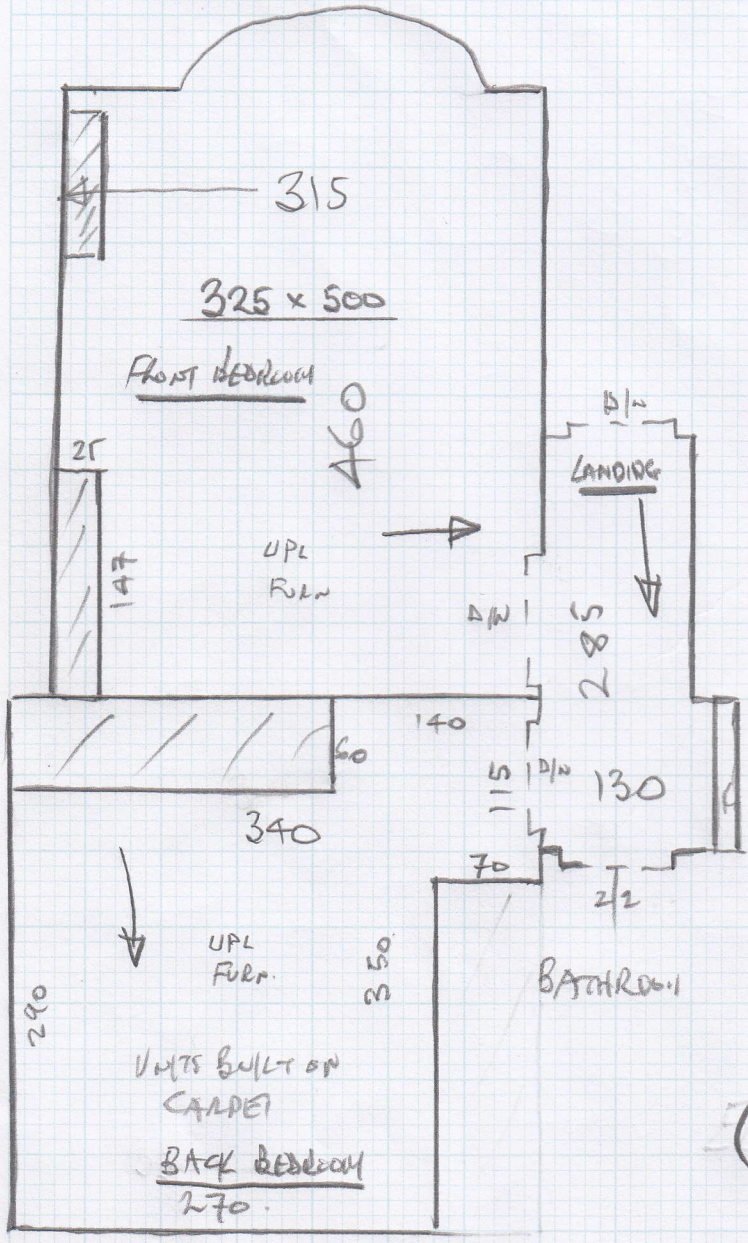 315
325 x 500
FRONT BEDROOM
460
25
147
UPL
FURN
D/W
LANDING
D/W
285
140
60
115
D/W
130
340
70
2/2
UPL
FURN.
350
290
BATHROOM
UNITS BUILT ON
CARPET
BACK BEDROOM
270.